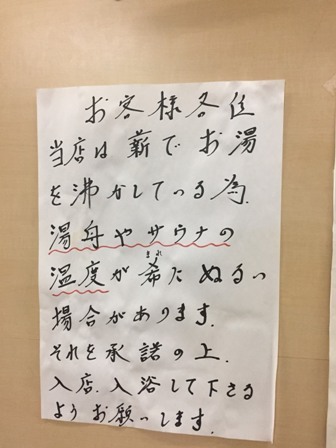 お客様各位
当店は薪でお湯
を沸かしている為、
湯舟やサウナの
温度が希にぬるい
まれ
場合があります。
それを承諾の上、
入店、入浴して下さる
ようお願いします。